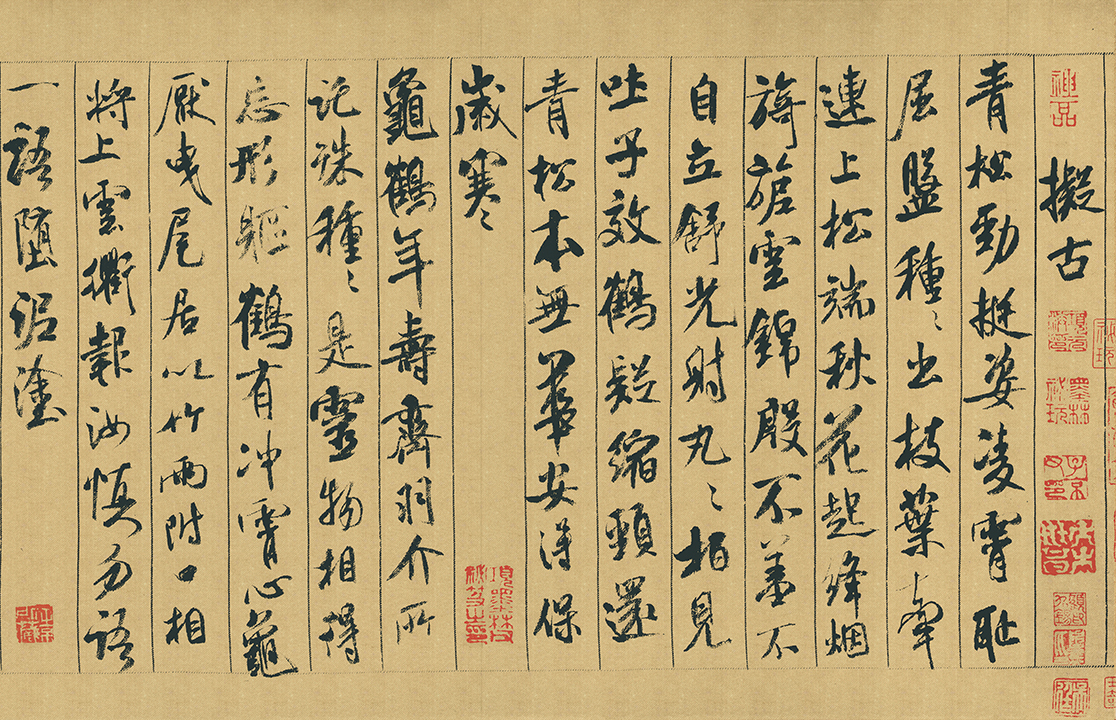 神品
擬古
青松勁挺姿凌霄耻
屈盤種〻出枝葉牽
連上松端秋花起絳烟
旖旎雲錦殷不羞不
自立舒光射丸〻柏見
吐子效鶴疑縮頸還
青松本無華安得保
歲寒
龜鶴年壽齊羽介所
託殊種〻是靈物相得
忘形軀鶴有冲霄心龜
厭曳尾居以竹兩附口相
將上雲衢報汝慎勿語
一語墮泥塗